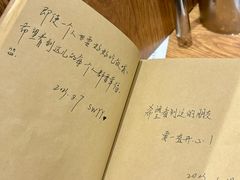 即使一个人也要好好吃饭哦
希望看到这儿的每个人都幸福
2021.8.7 SWTY♥
希望看到这的朋友
要一直开心!